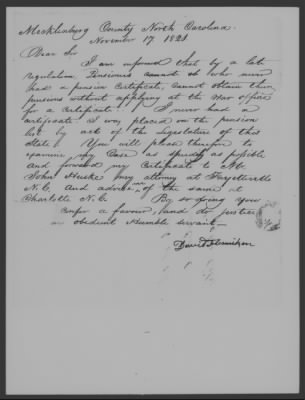 Mecklenburg County North Carolina
November 17 1821
Dear Sir
I am informed that by a late
regulation, Pensioners who never
had a pension certificate, cannot obtain their
pensions without applying at the War Office
for a certificate. I never had a
certificate I was placed on the pension
list by act of the Legislature of this
State. You will please therefore to
examine my Case as speedy as possible
and forward my Certificate to Mr.
John Huske my attorney at Fayetteville
N.C. and advise me of the same at
Charlotte N.C. By so doing you
confer a favour, and do justice
an obedient Humble servant
David